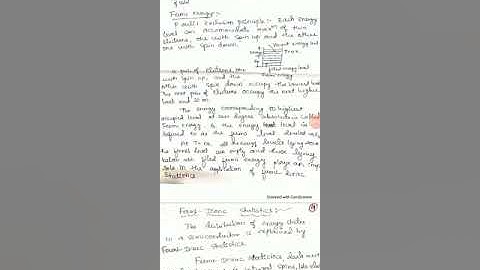 of solid
Fermi energy:-
Pauli exclusion principle:- Each energy
level can accommodate max^m of two
electrons, one with spin up and the other
one with spin down.
Vacant energy level
T=0 K
filled energy level
Fermi energy
a pair of electrons, one
with spin up, and the
other with spin down occupy the lowest level
The next pair of electrons occupy the next higher
level and so on.
The energy corresponding to highest
occupied level at zero degree
Fermi energy & the energy level is
referred to as the fermi level
At T=0K, all energy levels lying above
the fermi level are empty and those lying
below are filled fermi energy plays an imp
role in the application of fermi dirac
Statistics
Scanned with CamScanner
Fermi-Dirac statistics:-
The distribution of energy states
in a semiconductor is explained by
Fermi-Dirac statistics
Fermi-Dirac statistics deals with